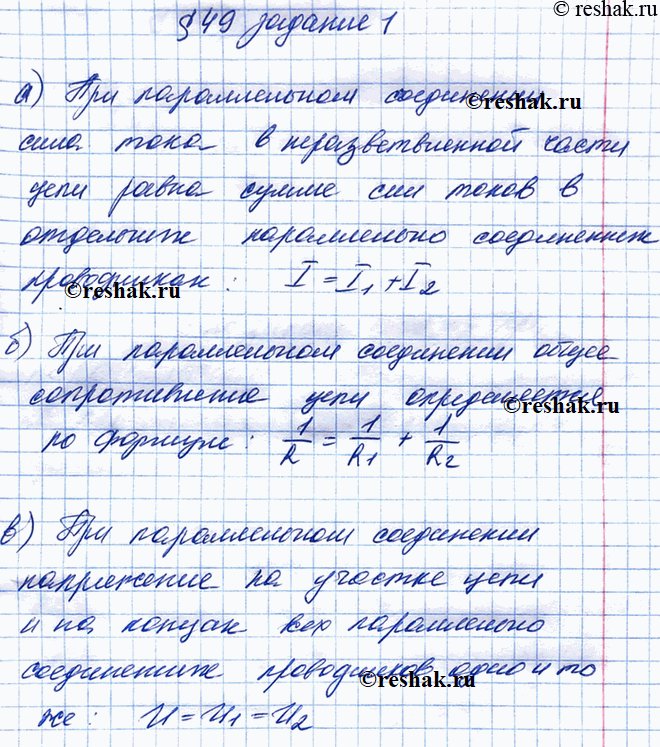 © reshak.ru
§49 задание 1
а) При параллельном соединении
©reshak.ru
сила тока в неразветвленной части
цепи равна сумме сил токов в
отдельных параллельно соединенных
проводниках: I = I₁ + I₂
©reshak.ru
б) При параллельном соединении общее
сопротивление цепи определяется
©reshak.ru
по формуле: 1/R = 1/R₁ + 1/R₂
в) При параллельном соединении
напряжение на участке цепи
и на концах всех параллельно
соединенных проводников одно и то
©reshak.ru
же: U = U₁ = U₂